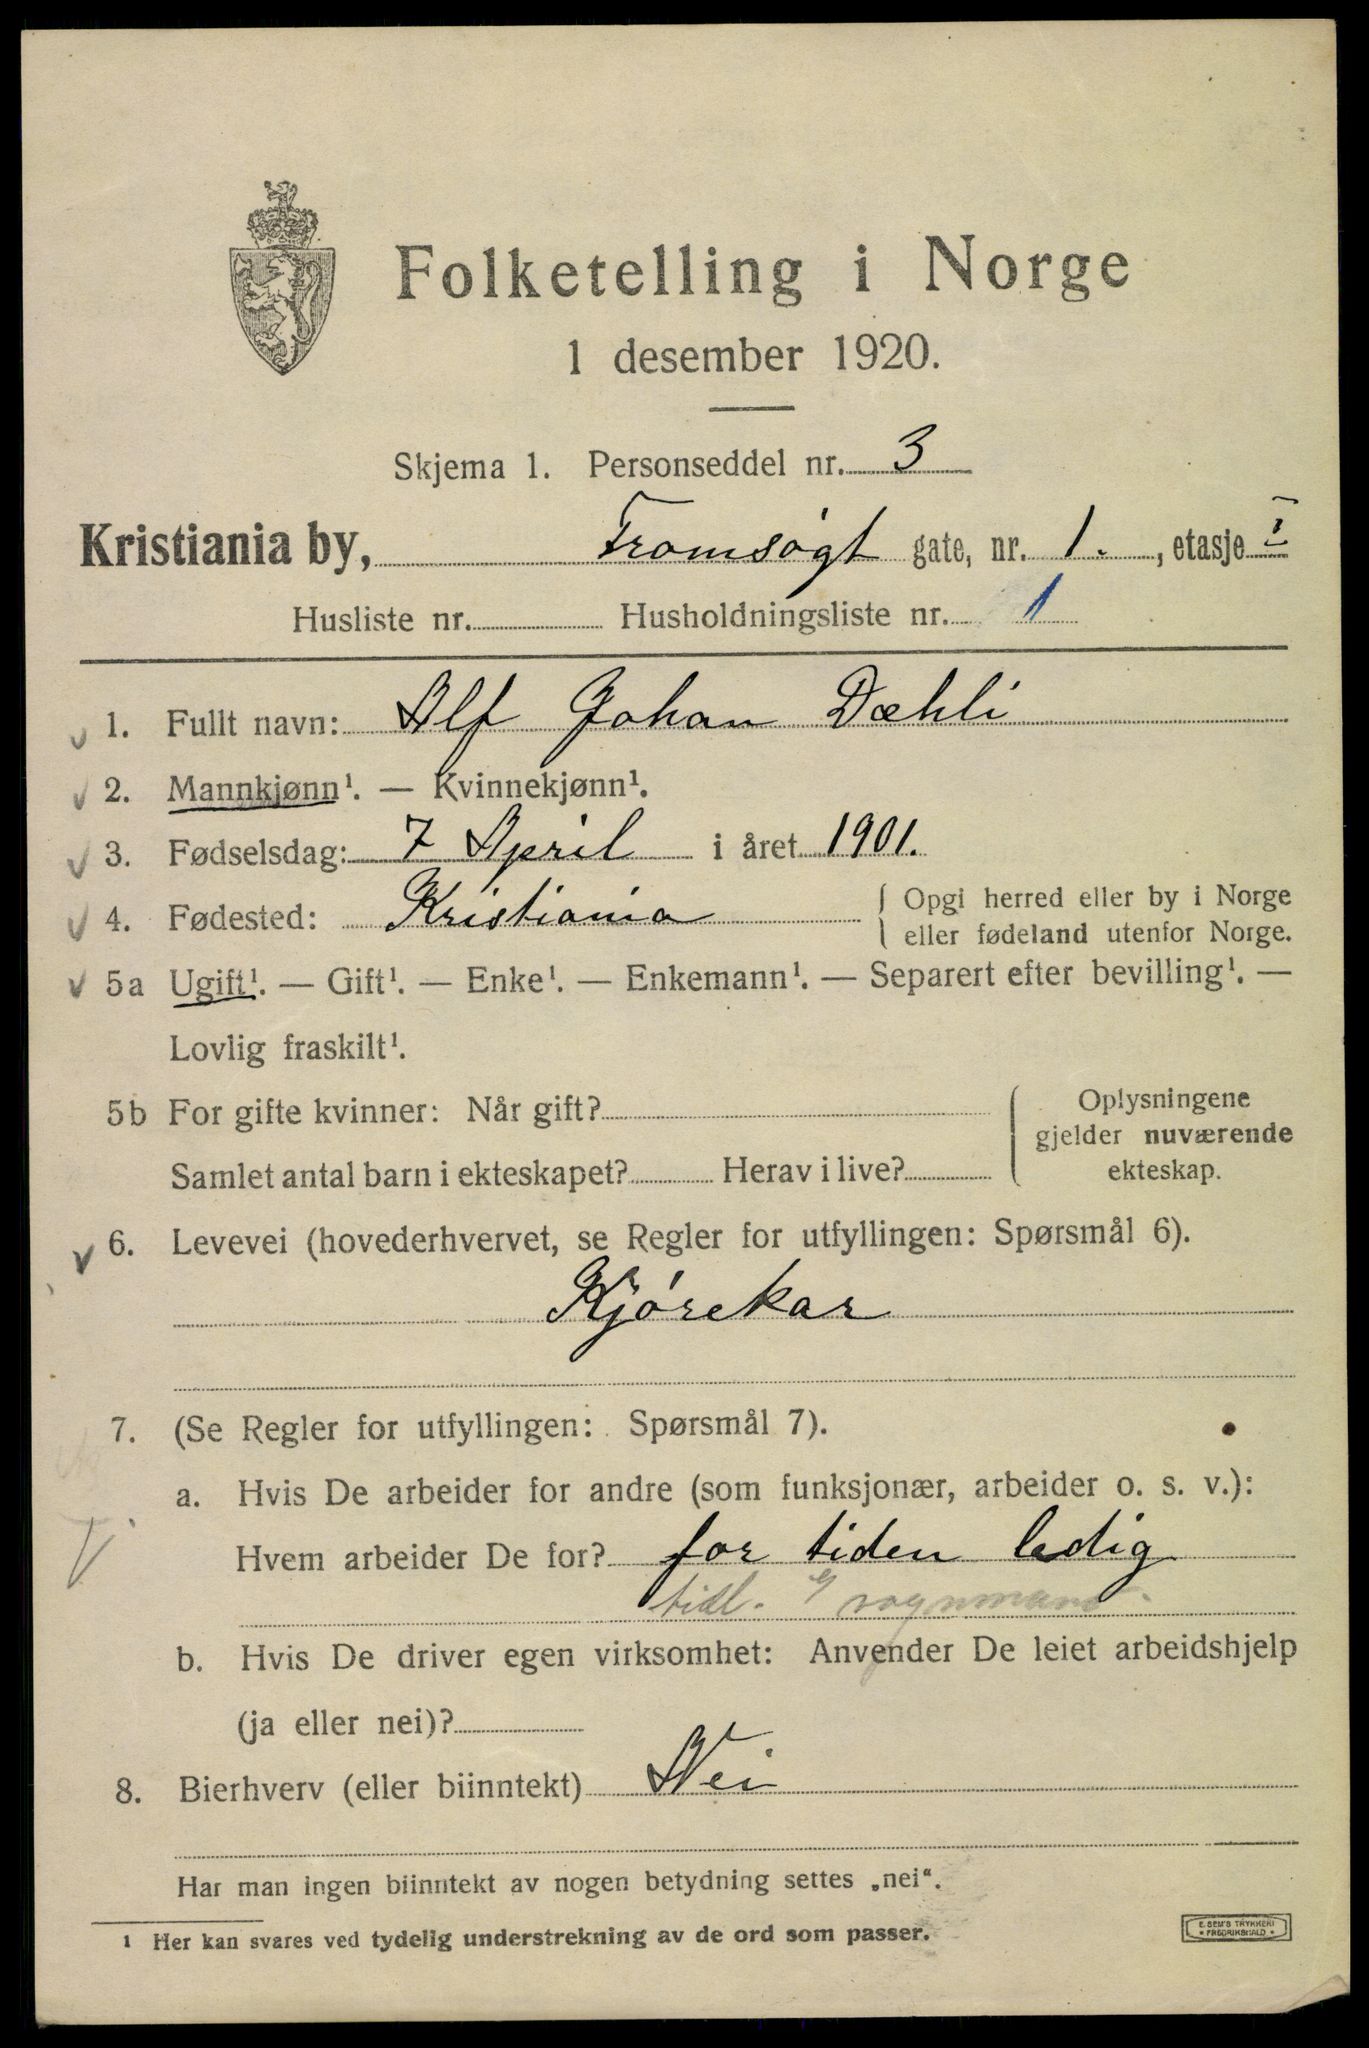 Folketelling i Norge
1 desember 1920.
Skjema 1. Personseddel nr. 3
Kristiania by, Tromsøgt gate, nr. 1. , etasje I
Husliste nr. Husholdningsliste nr. 1
1. Fullt navn: Alf Johan Dæhli
2. Mannkjønn¹. — Kvinnekjønn¹.
3. Fødselsdag: 7 April i året 1901.
4. Fødested: Kristiania { Opgi herred eller by i Norge
eller fødeland utenfor Norge.
5a Ugift¹. — Gift¹. — Enke¹. — Enkemann¹. — Separert efter bevilling¹. —
Lovlig fraskilt¹.
5b For gifte kvinner: Når gift? Oplysningene
gjelder nuværende
Samlet antal barn i ekteskapet? Herav i live? ekteskap.
6. Levevei (hovederhvervet, se Regler for utfyllingen: Spørsmål 6).
Kjørekar
7. (Se Regler for utfyllingen: Spørsmål 7).
a. Hvis De arbeider for andre (som funksjonær, arbeider o. s. v.):
Hvem arbeider De for? for tiden ledig
tidl. vognmann.
b. Hvis De driver egen virksomhet: Anvender De leiet arbeidshjelp
(ja eller nei)?
8. Bierhverv (eller biinntekt) Nei
Har man ingen biinntekt av nogen betydning settes „nei“.
¹ Her kan svares ved tydelig understrekning av de ord som passer.
E. SEM'S TRYKKERI
* FREDRIKSHALD *